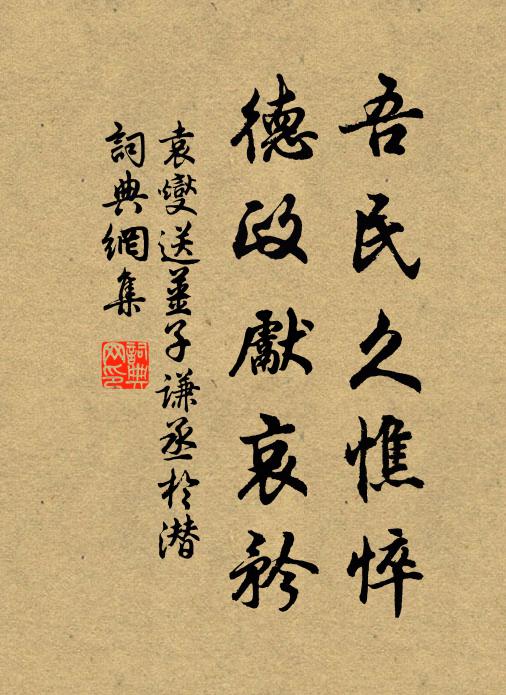 吾民久憔悴
德政獻哀矜
袁燮送薑子謙丞於潜
詞典網集
詞典网印